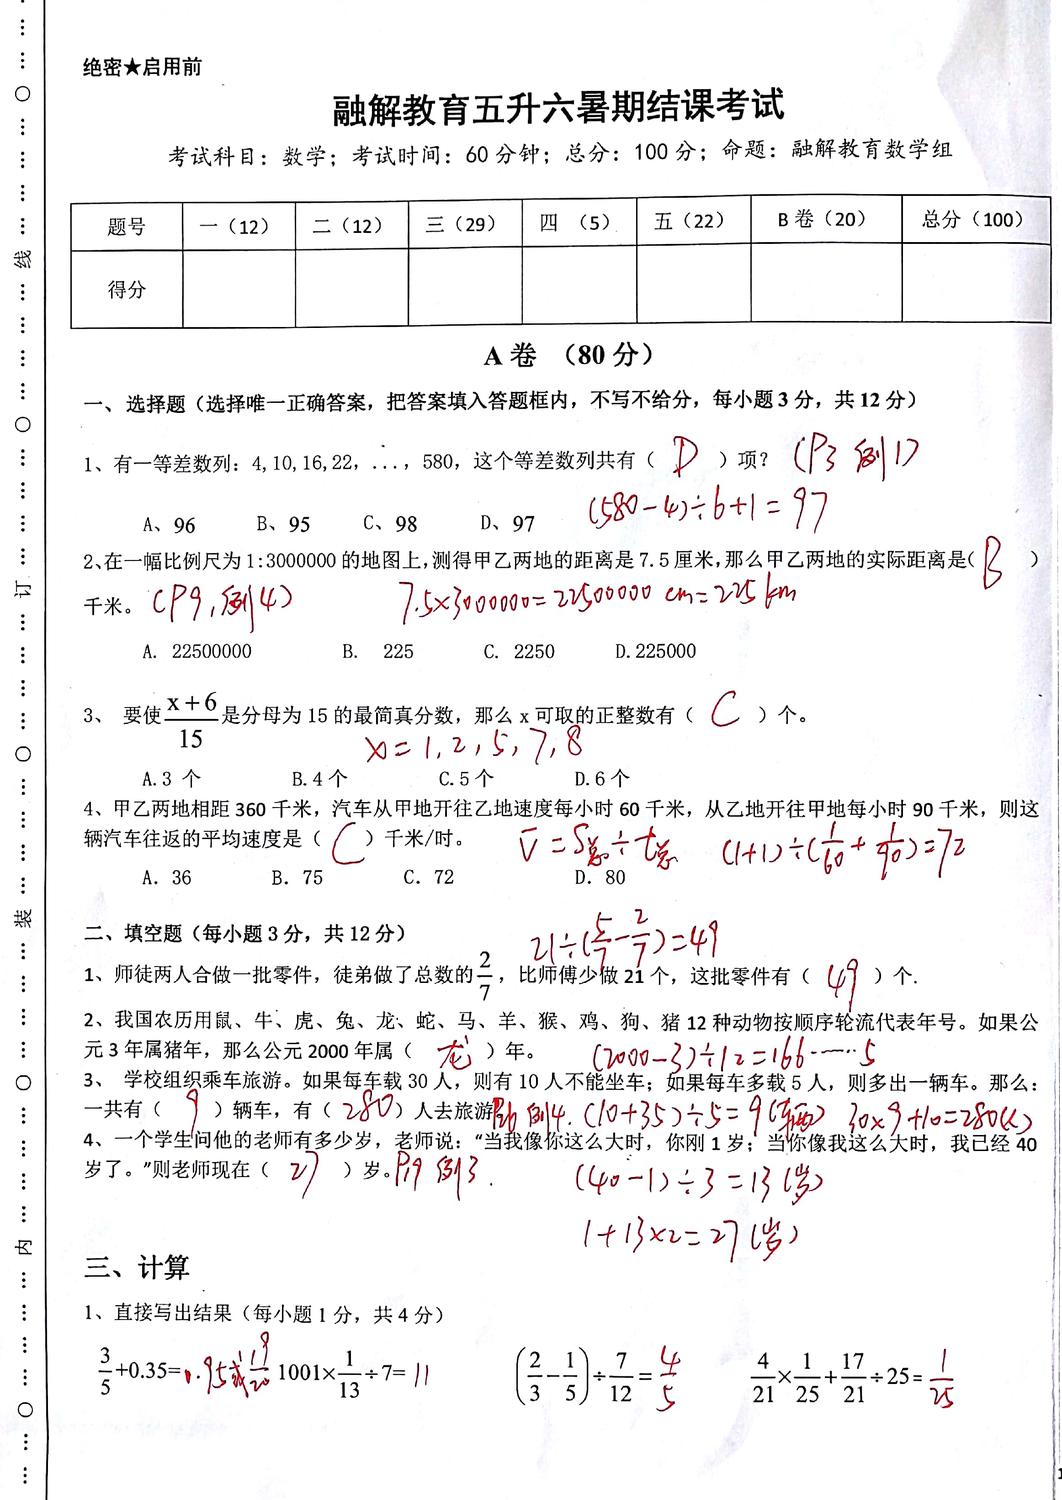 绝密★启用前
融解教育五升六暑期结课考试
考试科目：数学；考试时间：60分钟；总分：100分；命题：融解教育数学组
题号 一（12） 二（12） 三（29） 四 （5） 五（22） B卷（20） 总分（100）
得分
A卷 （80分）
一、选择题（选择唯一正确答案，把答案填入答题框内，不写不给分，每小题3分，共12分）
1、有一等差数列：4,10,16,22，...，580，这个等差数列共有（ D ）项？ (P3 例1)
A、96 B、95 C、98 D、97 (580-4)÷6+1=97
2、在一幅比例尺为1:3000000的地图上,测得甲乙两地的距离是7.5厘米,那么甲乙两地的实际距离是( B )
千米。 (P9,例4) 7.5×3000000=22500000 cm=225km
A. 22500000 B. 225 C. 2250 D.225000
3、 要使 (x+6)/15 是分母为15的最简真分数，那么x可取的正整数有（ C ）个。
x=1,2,5,7,8
A.3 个 B.4个 C.5个 D.6个
4、甲乙两地相距360千米，汽车从甲地开往乙地速度每小时60千米，从乙地开往甲地每小时90千米，则这
辆汽车往返的平均速度是（ C ）千米/时。 v̄=S总÷t总 (1+1)÷(1/60+1/90)=72
A. 36 B. 75 C. 72 D. 80
二、填空题（每小题3分，共12分）
21÷(5/7-2/7)=49
1、师徒两人合做一批零件，徒弟做了总数的2/7，比师傅少做21个，这批零件有（ 49 ）个.
2、我国农历用鼠、牛、虎、兔、龙、蛇、马、羊、猴、鸡、狗、猪12种动物按顺序轮流代表年号。如果公
元3年属猪年，那么公元2000年属（ 龙 ）年。 (2000-3)÷12=166……5
3、 学校组织乘车旅游。如果每车载30人，则有10人不能坐车；如果每车多载5人，则多出一辆车。那么：
一共有（ 9 ）辆车，有（ 280 ）人去旅游 例4. (10+35)÷5=9(辆) 30×9+10=280(人)
4、一个学生问他的老师有多少岁，老师说：“当我像你这么大时，你刚1岁；当你像我这么大时，我已经40
岁了。”则老师现在（ 27 ）岁。 P19 例3. (40-1)÷3=13(岁)
1+13×2=27(岁)
三、计算
1、直接写出结果（每小题1分，共4分）
3/5+0.35=0.95或19/20 1001×1/13÷7=11 (2/3-1/5)÷7/12=4/5 4/21×1/25+17/21÷25=1/25
线
订
装
内
1